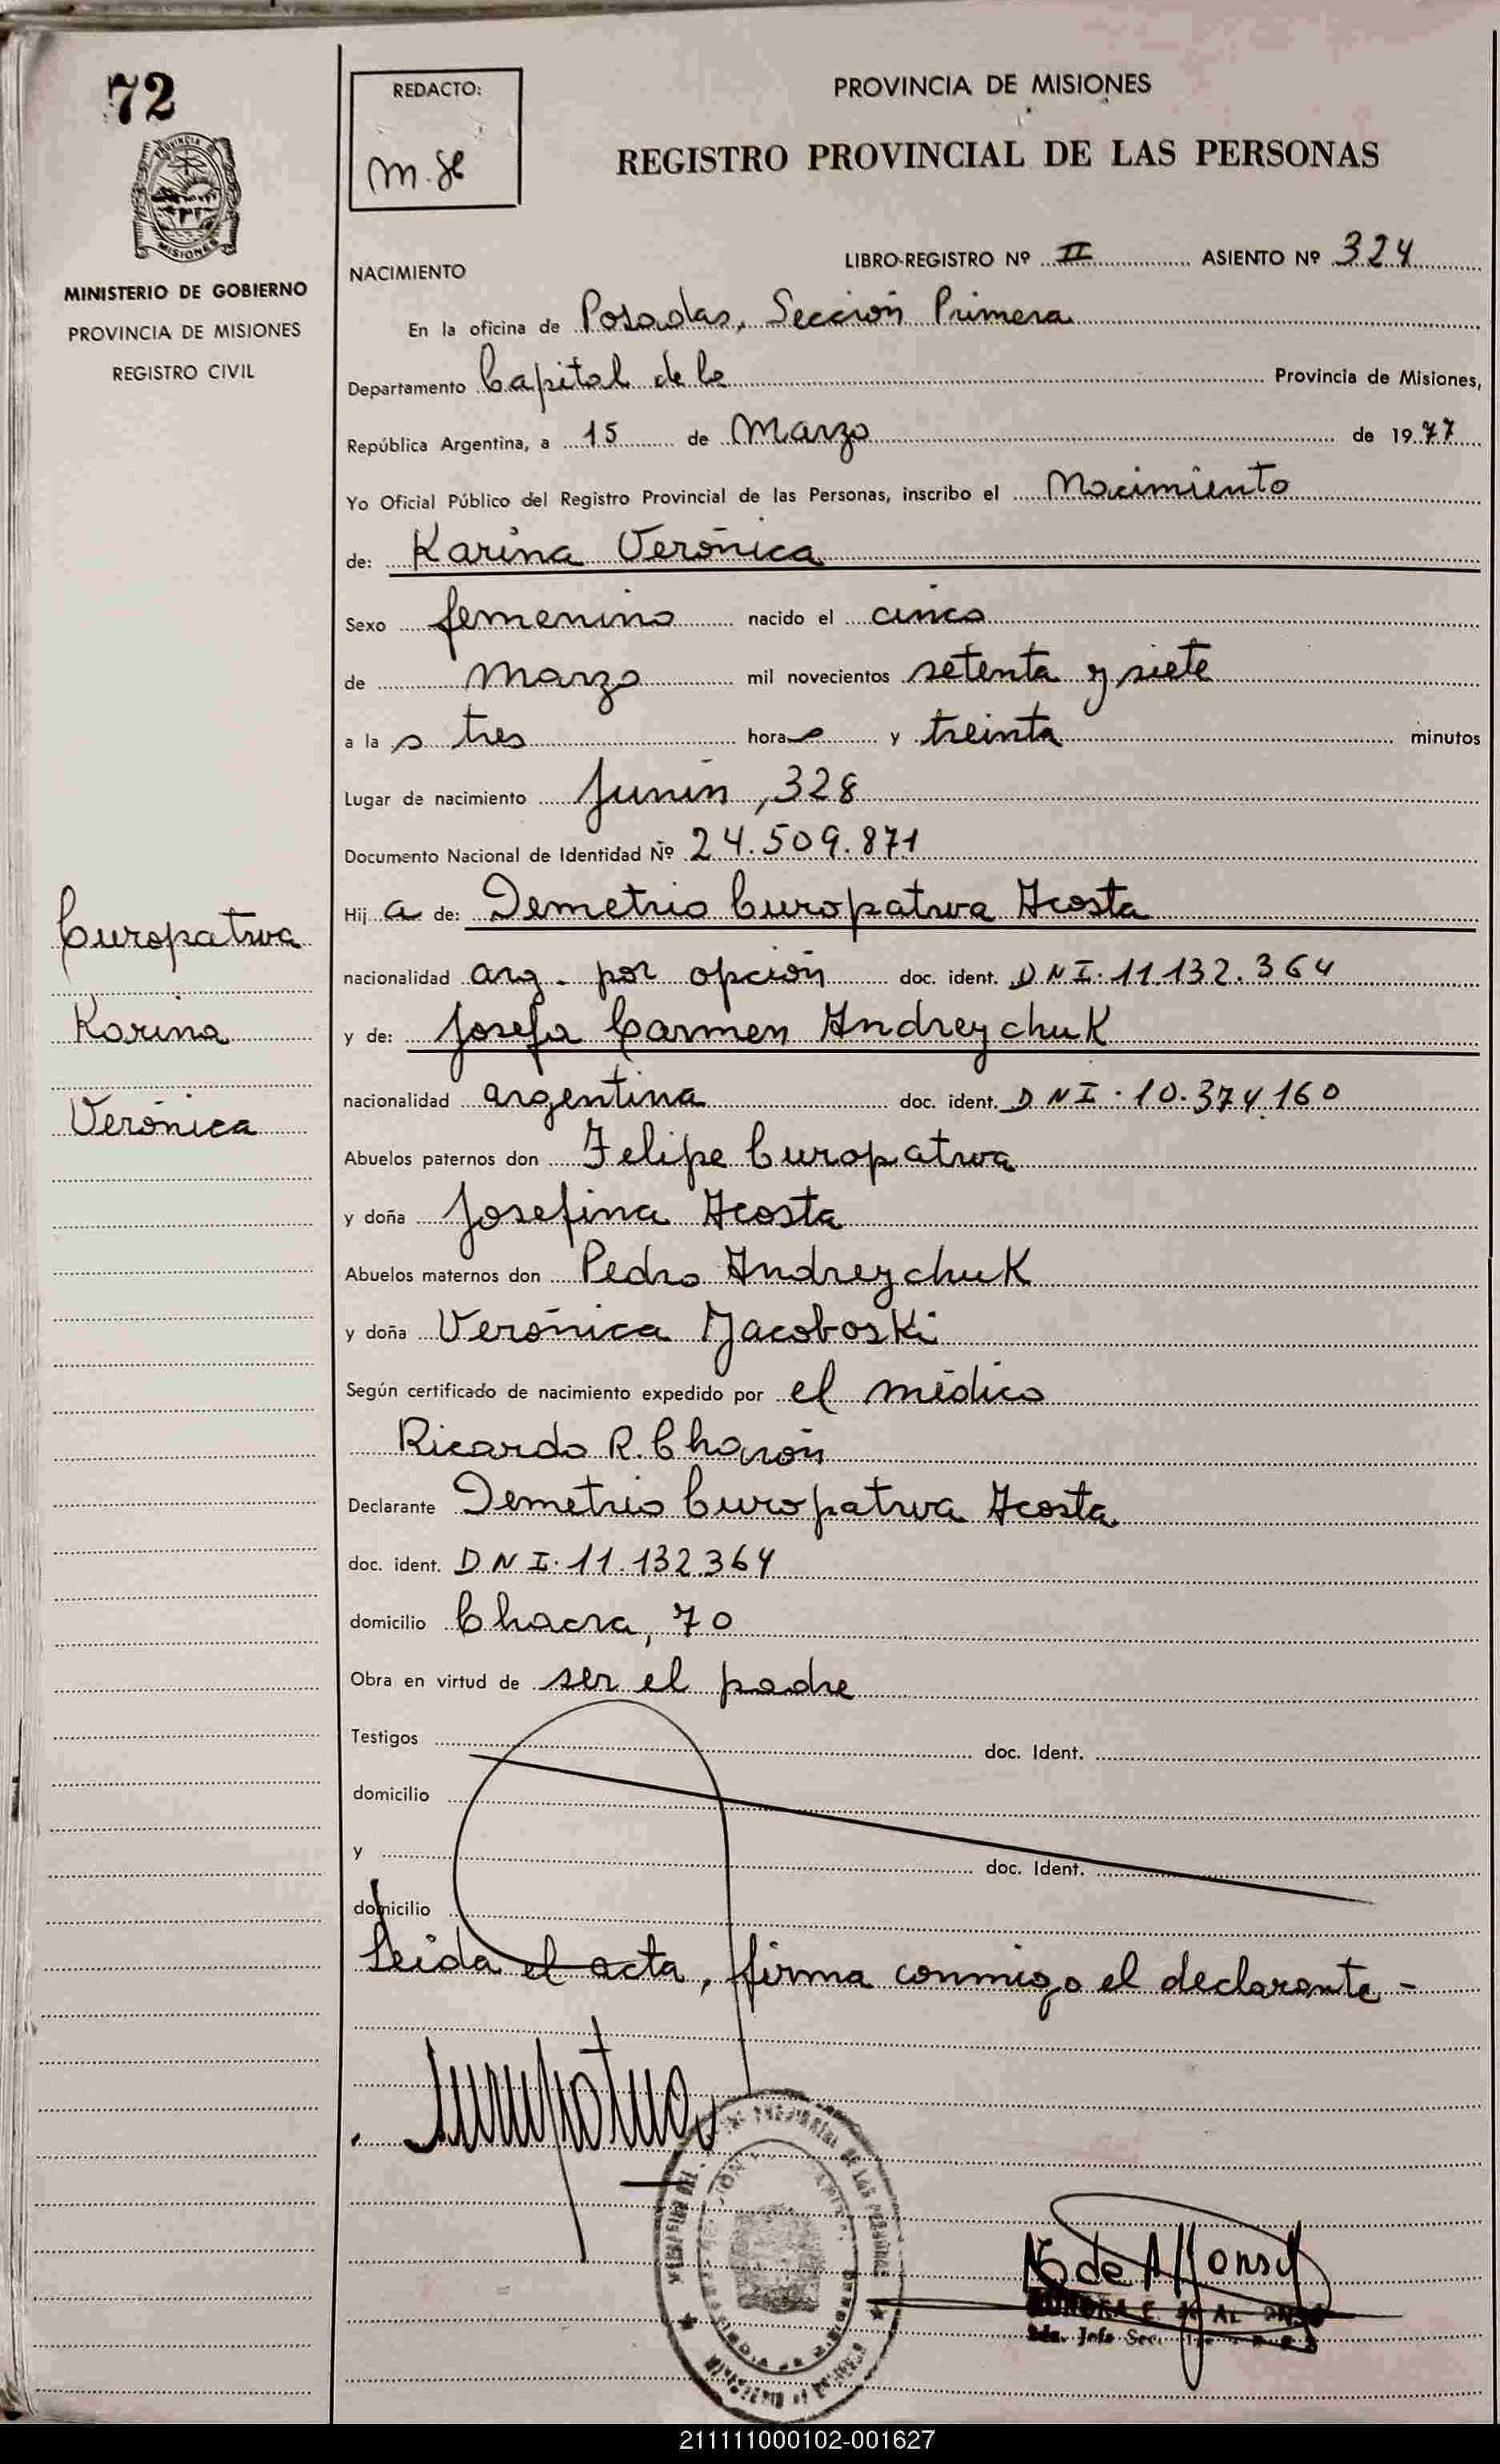 72
REDACTO:
M. Je
PROVINCIA DE MISIONES
REGISTRO PROVINCIAL DE LAS PERSONAS
PROVINCIA DE
MISIONES
MINISTERIO DE GOBIERNO
PROVINCIA DE MISIONES
REGISTRO CIVIL
LIBRO-REGISTRO Nº II ASIENTO Nº 324
NACIMIENTO
En la oficina de Posadas, Sección Primera
Departamento Capital de la Provincia de Misiones,
República Argentina, a 15 de Marzo de 1977
Yo Oficial Público del Registro Provincial de las Personas, inscribo el Nacimiento
de: Karina Verónica
Sexo femenino nacido el cinco
de Marzo mil novecientos setenta y siete
a las tres horas y treinta minutos
Lugar de nacimiento Junín, 328
Documento Nacional de Identidad Nº 24.509.871
Hija de: Demetrio Curopatwa Acosta
nacionalidad arg. por opción doc. ident. DNI. 11.132.364
y de: Josefa Carmen Andreychuk
nacionalidad argentina doc. ident. DNI. 10.374.160
Abuelos paternos don Felipe Curopatwa
y doña Josefina Acosta
Abuelos maternos don Pedro Andreychuk
y doña Verónica Jacoboski
Según certificado de nacimiento expedido por el médico
Ricardo R.
Declarante Demetrio Curopatwa Acosta
doc. ident. DNI. 11.132.364
domicilio Chacra, 70
Obra en virtud de ser el padre
Testigos doc. Ident.
domicilio
y doc. Ident.
domicilio
Leida el acta, firma conmigo el declarante -
Curopatwa
Karina
Verónica
Curopatwa
DE LAS PERSONAS
de Alfonso
AURORA E. DE ALFONSO
Jefe Sec.
211111000102-001627